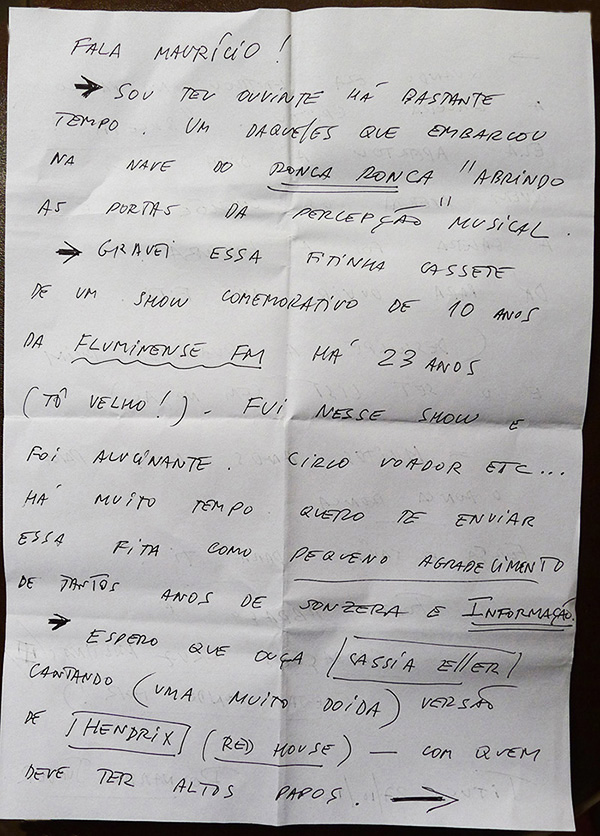 FALA MAURÍCIO!
→ SOU TEU OUVINTE HÁ BASTANTE
TEMPO. UM DAQUELES QUE EMBARCOU
NA NAVE DO RONCA RONCA "ABRINDO
AS PORTAS DA PERCEPÇÃO" MUSICAL.
→ GRAVEI ESSA FITINHA CASSETE
DE UM SHOW COMEMORATIVO DE 10 ANOS
DA FLUMINENSE FM HÁ 23 ANOS
(TÔ VELHO!). FUI NESSE SHOW E
FOI ALUCINANTE. CIRCO VOADOR ETC...
HÁ MUITO TEMPO QUERO TE ENVIAR
ESSA FITA COMO PEQUENO AGRADECIMENTO
DE TANTOS ANOS DE SONZERA E INFORMAÇÃO.
→ ESPERO QUE OUÇA |CASSIA ELLER|
CANTANDO (UMA MUITO DOIDA) VERSÃO
DE |HENDRIX| (RED HOUSE) — COM QUEM
DEVE TER ALTOS PAPOS. →